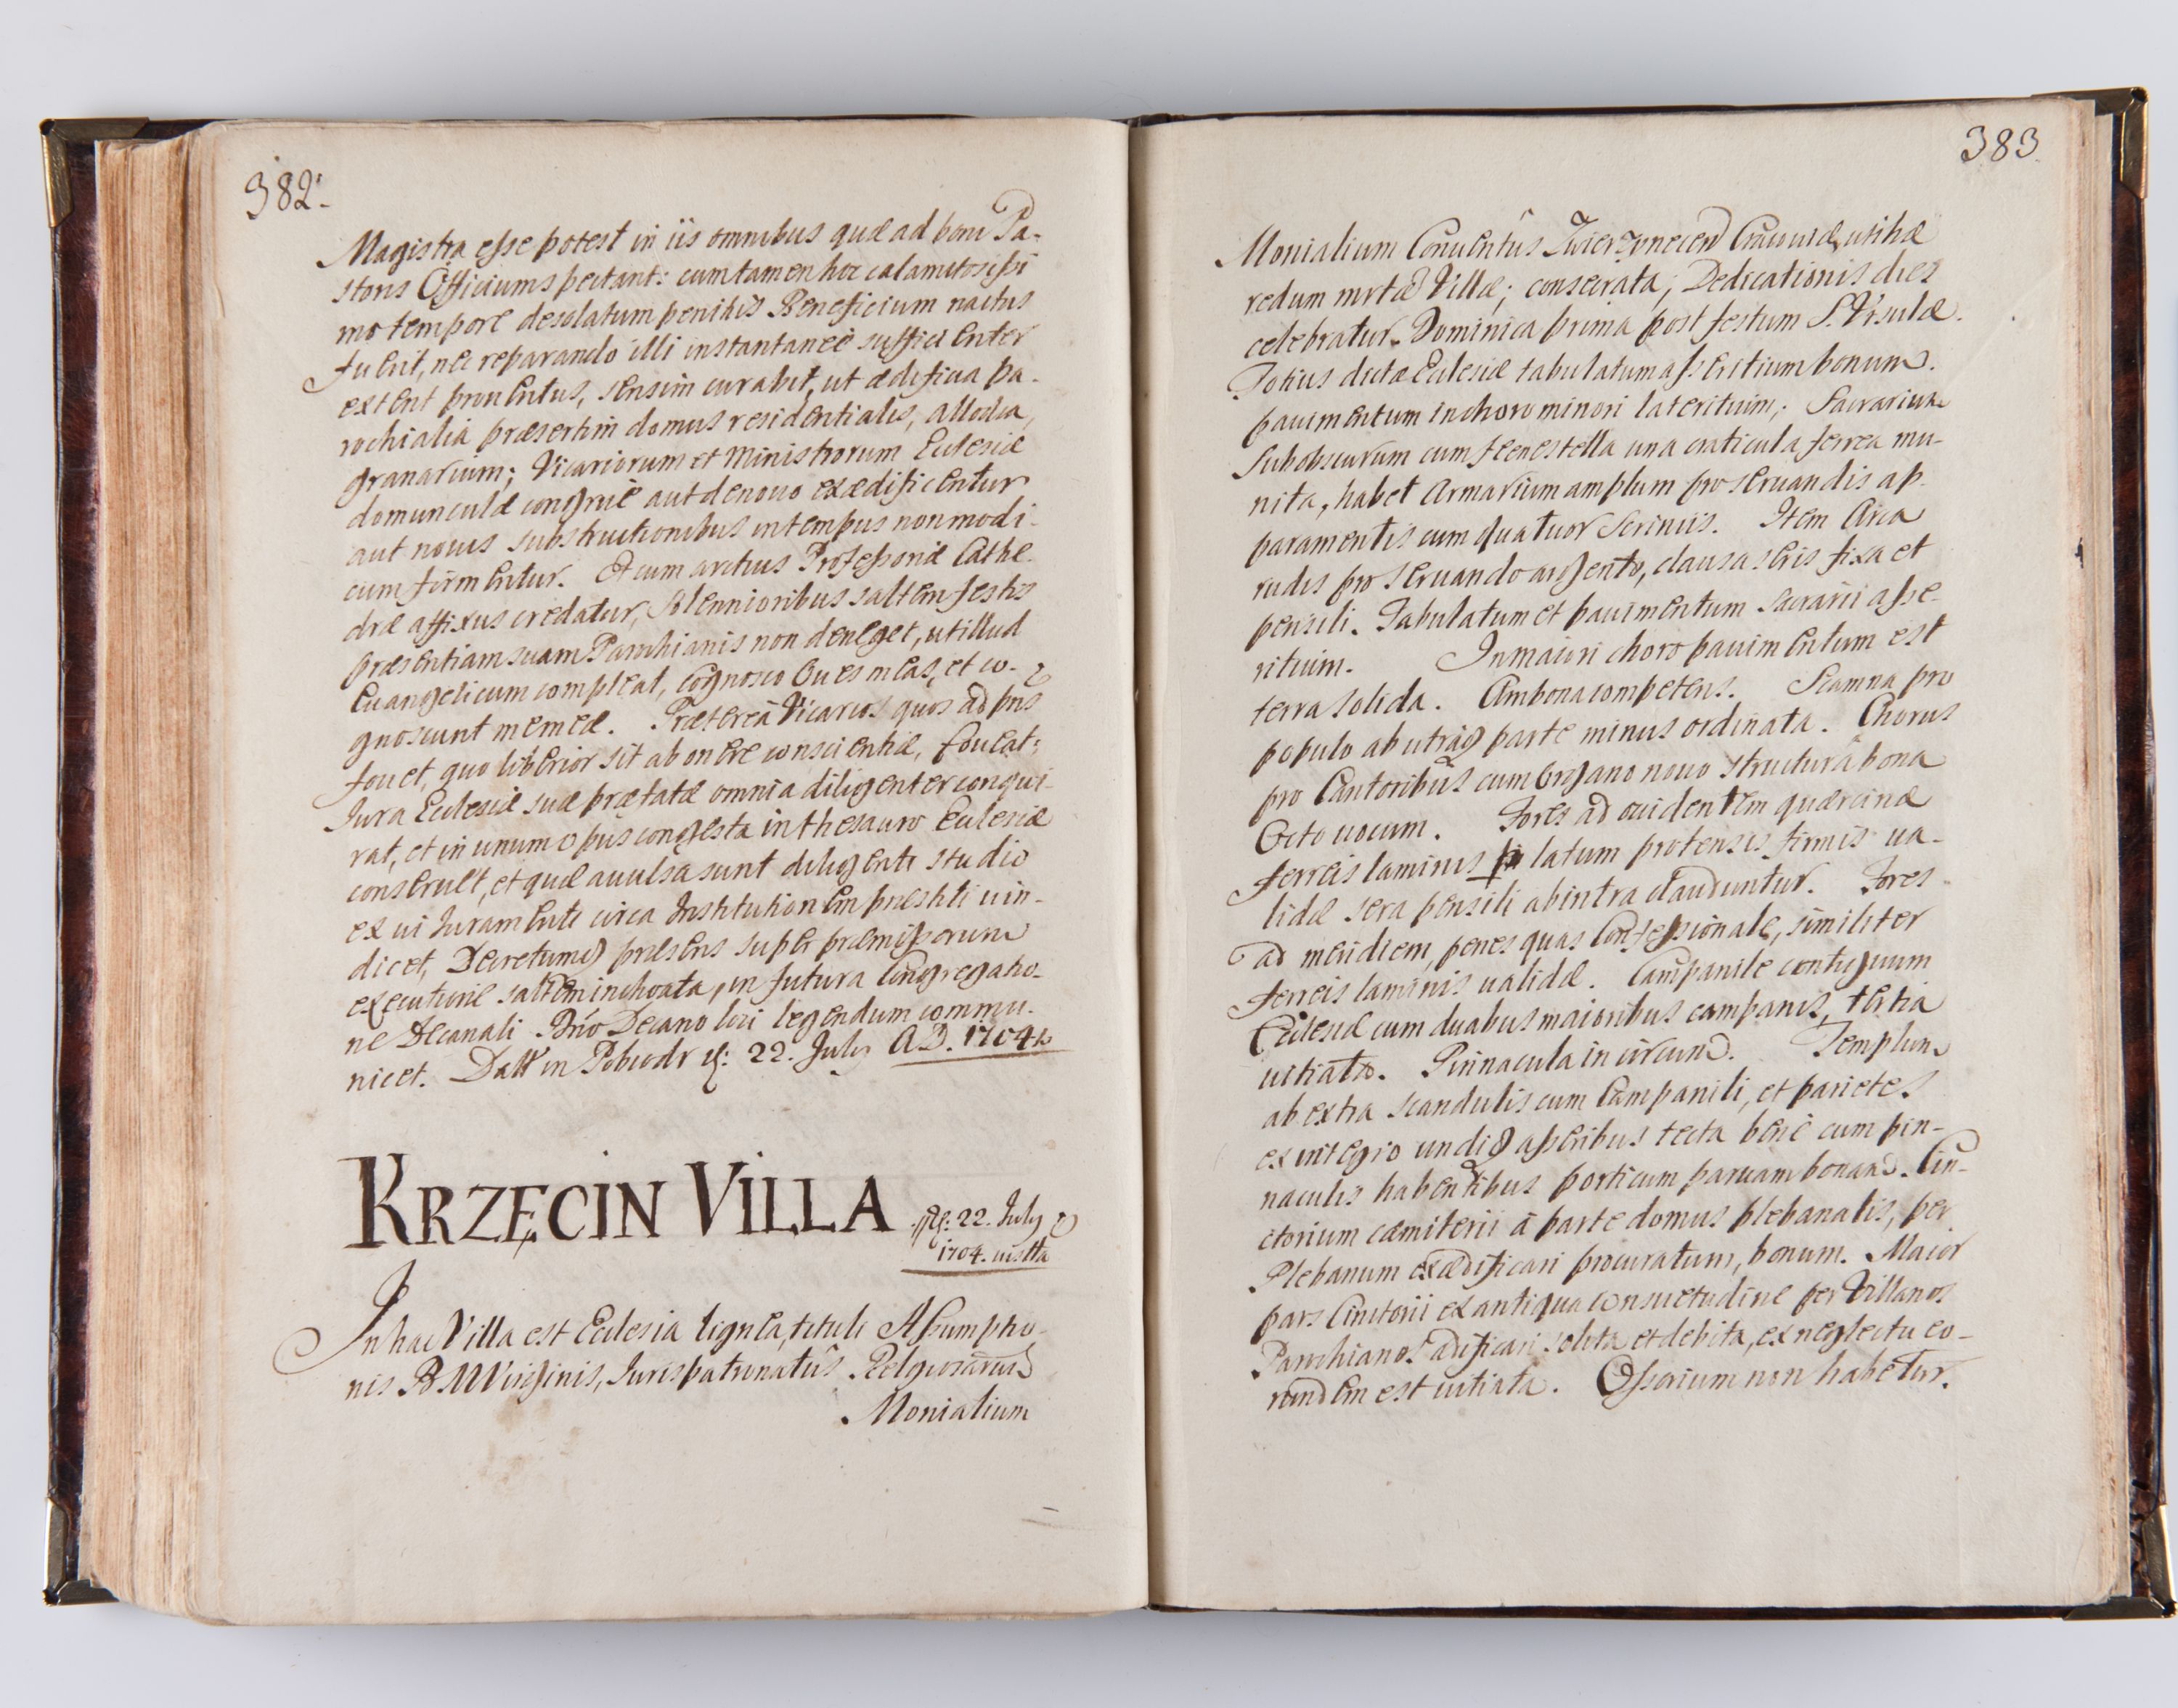 382.
Magistra esse potest in iis omnibus quæ ad boni Pa-
storis Officium spectant: cum tamen hoc calamitosissi
mo tempore desolatum penitus Beneficium nactus
fuerit, nec reparando illi instantaneè sufficienter
extent prouentus, sensim curabit, ut ædificia pa-
rochialia præsertim domus residentialis, allodia,
granarium; Vicariorum et Ministrorum Ecclesiæ
domunculæ congruè aut denouo exædificentur
aut nouis substructionibus in tempus non modi-
cum firmentur. Et cum arctius Professoriæ Cathe-
dræ affixus credatur, Solennioribus saltem festis
præsentiam suam Parochianis non deneget, ut illud
Euangelicum compleat, cognosco Oues meas, et co-
gnoscunt me meæ. Præterea Vicarios quos ad pns
fouet, quo liberior sit ab onere conscientiæ, foueat;
Jura Ecclesiæ suæ prætatæ omnia diligenter conqui-
rat, et in unum opus congesta in thesauro Ecclesiæ
conseruet, et quæ auulsa sunt diligenti studio
ex ui Iuramenti circa Institutionem præstiti uin-
dicet, Decretumq præsens super præmissorum
executione saltem inchoata, in futura Congregatio-
ne Decanali Pndo Decano loci legendum commu-
nicet. Datt in Pobiedr 22. July A.D. 1704.
KRZĘCIN VILLA
22. July
1704. uisitta
In hac Villa est Ecclesia lignea, tituli Assumptio-
nis B M Virginis, Iuris patronatûs Relgiosarum
Monialium
383
Monialium Conuentûs Zwierzynecen Cracouiæ, uti hæ
redum mrtæ Villæ; consecrata; Dedicationis dies
celebratur Dominica prima post festum S. Vrsulæ.
Totius dictæ Ecclesiæ tabulatum asseritium bonum.
pauimentum in choro minori lateritium; Sacrarium
subobscurum cum feenestella una craticula ferrea mu-
nita, habet Armarium amplum pro seruandis ap-
paramentis cum quatuor Scriniis. Item Arca
rudis pro seruando argento, clausa seris fixa et
pensili. Tabulatum et pauimentum sacrarii asse-
ritium. In maiori choro pauimentum est
terra solida. Ambona competens. Scamna pro
populo ab utraq parte minus ordinata. Chorus
pro Cantoribus cum Organo nouo structurâ bona
Octo uocum. Fores ad occidentem quærcinæ
ferreis laminis latum protensis firmis ua-
lidæ sera pensili ab intra clauduntur. Fores
ad meridiem, penes quas Confessionale, similiter
ferreis laminis ualidæ. Campanile contiguum
Ecclesiæ cum duabus maioribus campanis, tertia
uitiata. Pinnacula in circum. Templum
ab extra scandulis cum Campanili, et parietes
ex integro undiq asseribus tecta benè cum pin-
naculis habentibus porticum paruam bonam. Cin-
ctorium cæmiterii â parte domus plebanalis, per
Plebanum exædificari procuratum, bonum. Maior
pars Cinctorii ex antiqua consuetudine per Villanos
Parochianos ædificari solita et debita, ex neglectu eo-
rundem est uitiata. Ossorium non habetur.